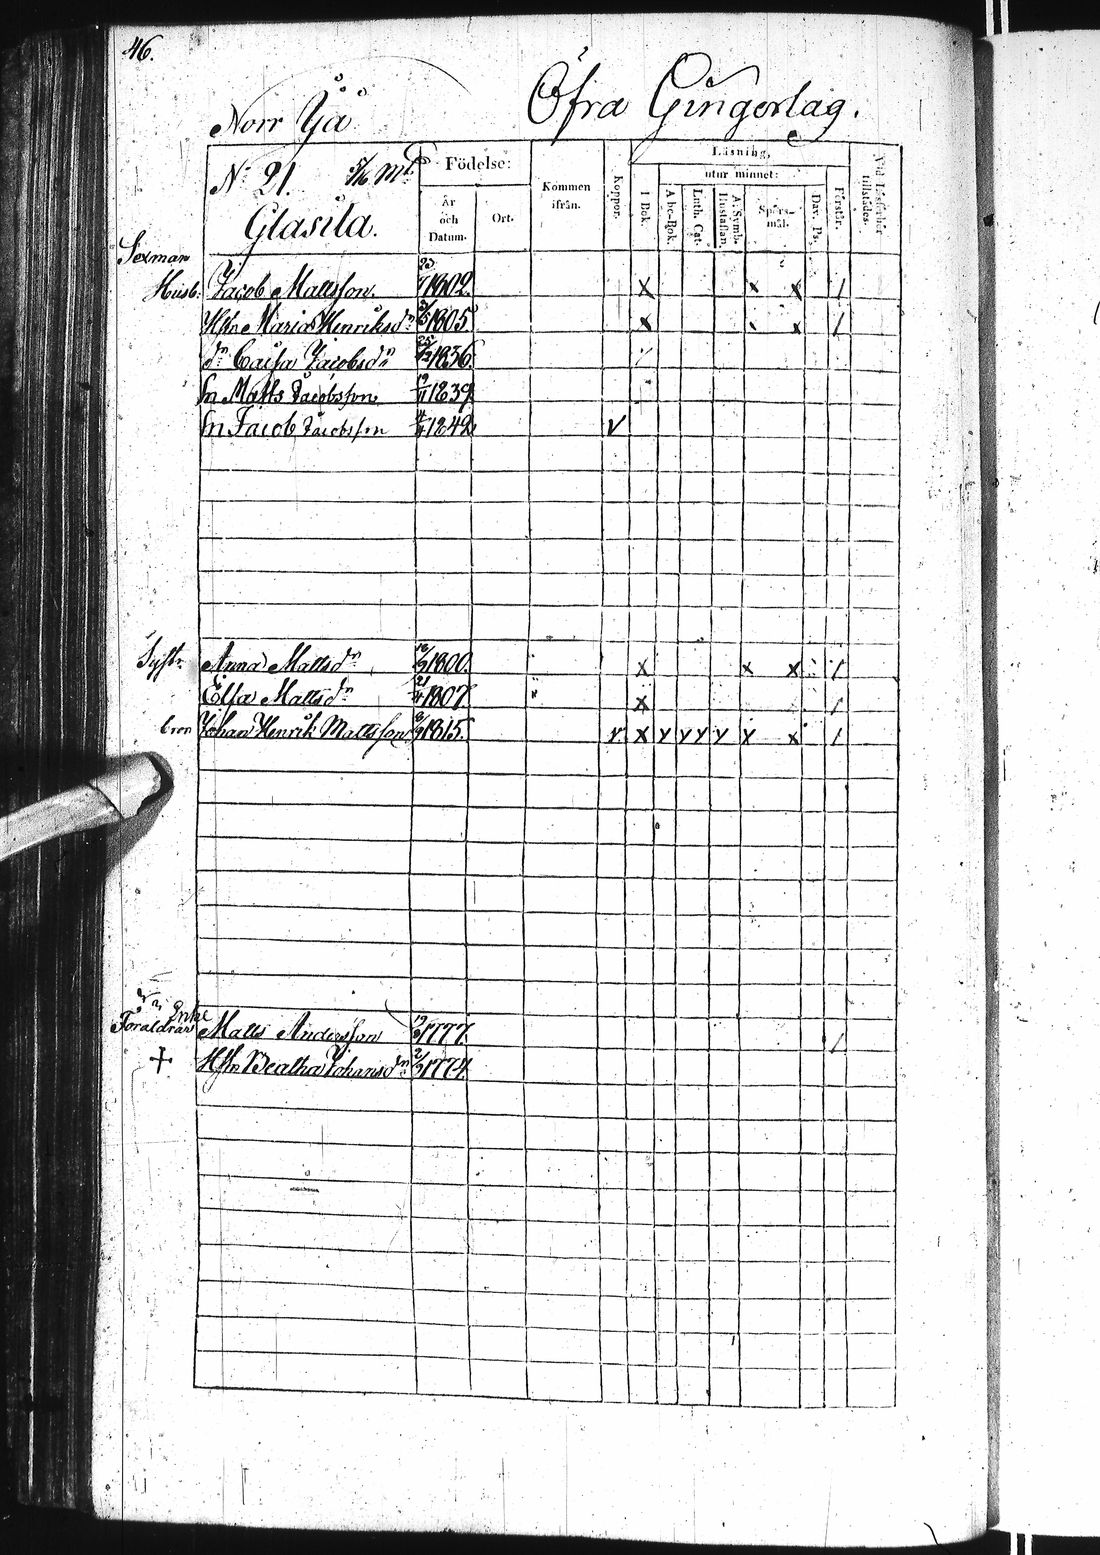 46.
Norr Yå Öfra Gingerlag.
No 21. 5/16 Mtl
Glasila.
Födelse:
År och Datum.
Ort.
Kommen ifrån.
Koppor.
Läsning,
utur minnet:
I Bok.
Abc-Bok.
Luth. Cat.
A. Symb. Hustaflan.
Spörs-mål.
Dav. Ps.
Förstår.
Vid Läsförhör tillstädes.
Sexman
Husb. Jacob Mattsson. 1802.
Hstn Maria Henriksdr 1805
dr Caisa Jacobsdr 25/12 1836.
Sn Matts Jacobsson 19/11 1839
Sn Jacob Jacobsson 1842 v
Syst. Anna Mattsdr 1800. x x x /
Elsa Mattsdr 21/4 1807. x /
bror Johan Henrik Mattsson 1815. v x y y y y x x /
Enkl
Föräldrar Matts Andersson 1777. /
+ Hstn Beatha Johansdr 1774.